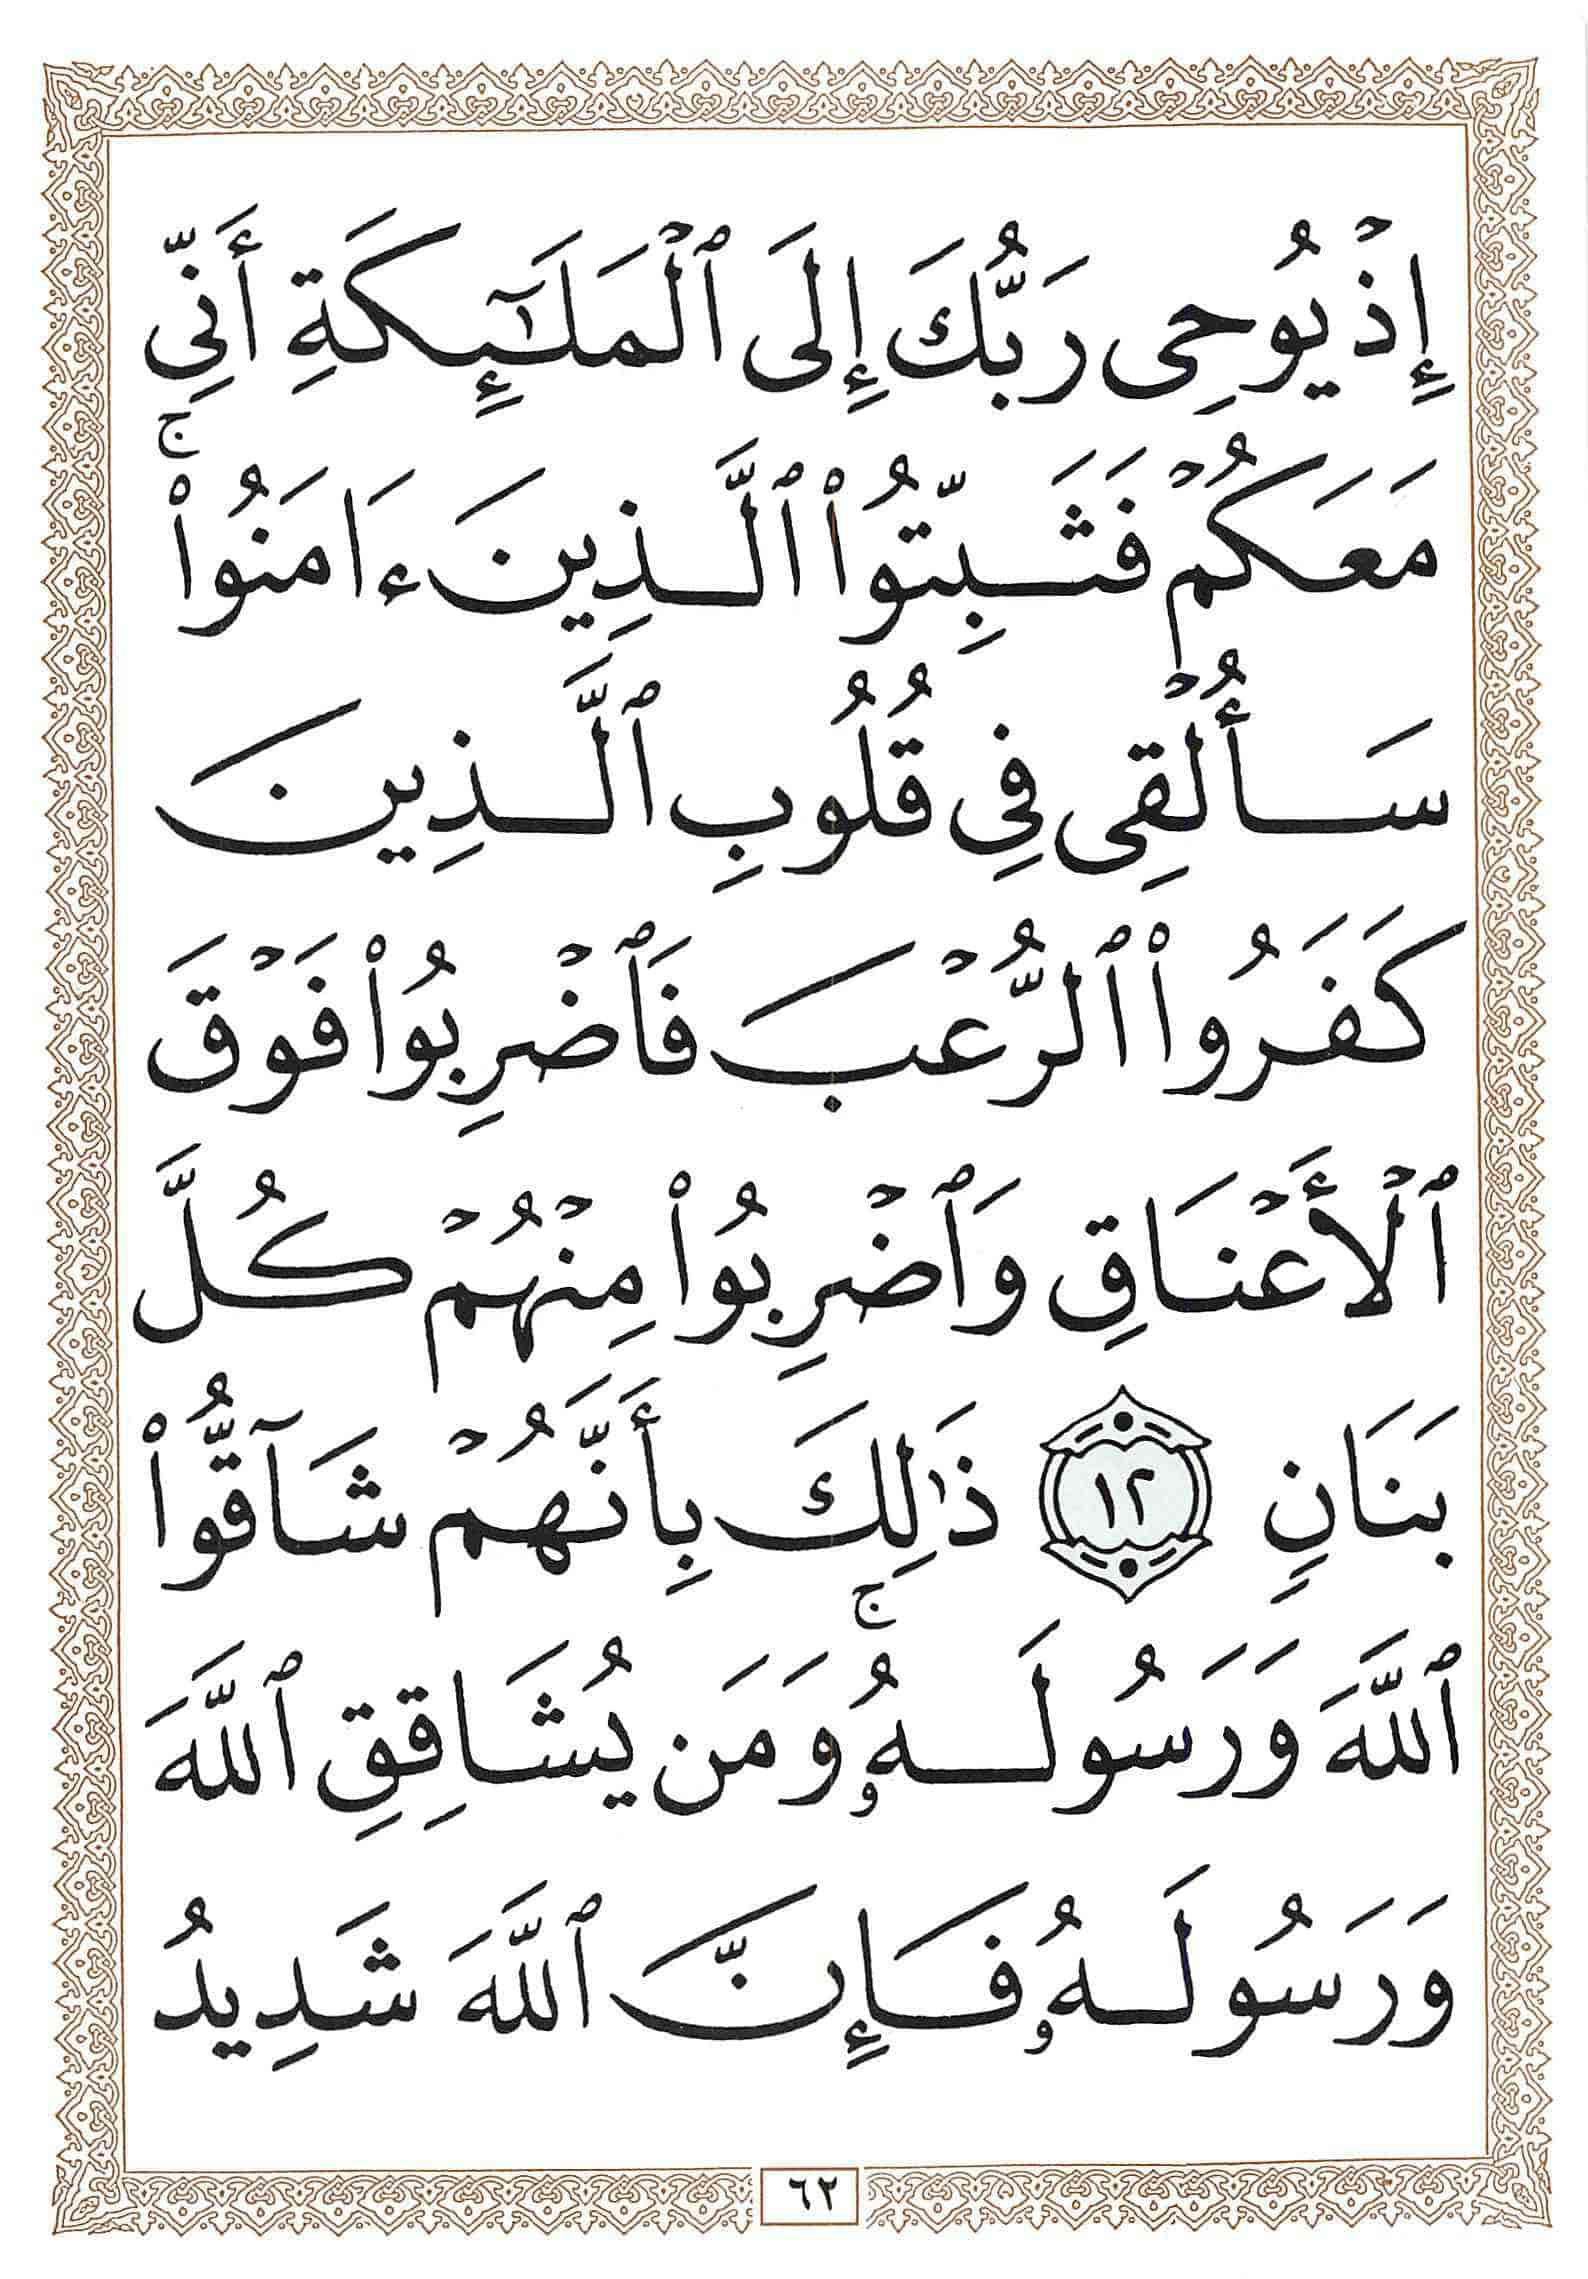 إِذْ يُوحِى رَبُّكَ إِلَى ٱلْمَلَـٰٓئِكَةِ أَنِّى
مَعَكُمْ فَثَبِّتُوا۟ ٱلَّذِينَ ءَامَنُوا۟ ۚ
سَأُلْقِى فِى قُلُوبِ ٱلَّذِينَ
كَفَرُوا۟ ٱلرُّعْبَ فَٱضْرِبُوا۟ فَوْقَ
ٱلْأَعْنَاقِ وَٱضْرِبُوا۟ مِنْهُمْ كُلَّ
بَنَانٍ ١٢ ذَٰلِكَ بِأَنَّهُمْ شَآقُّوا۟
ٱللَّهَ وَرَسُولَهُۥ ۚ وَمَن يُشَاقِقِ ٱللَّهَ
وَرَسُولَهُۥ فَإِنَّ ٱللَّهَ شَدِيدُ
٦٢